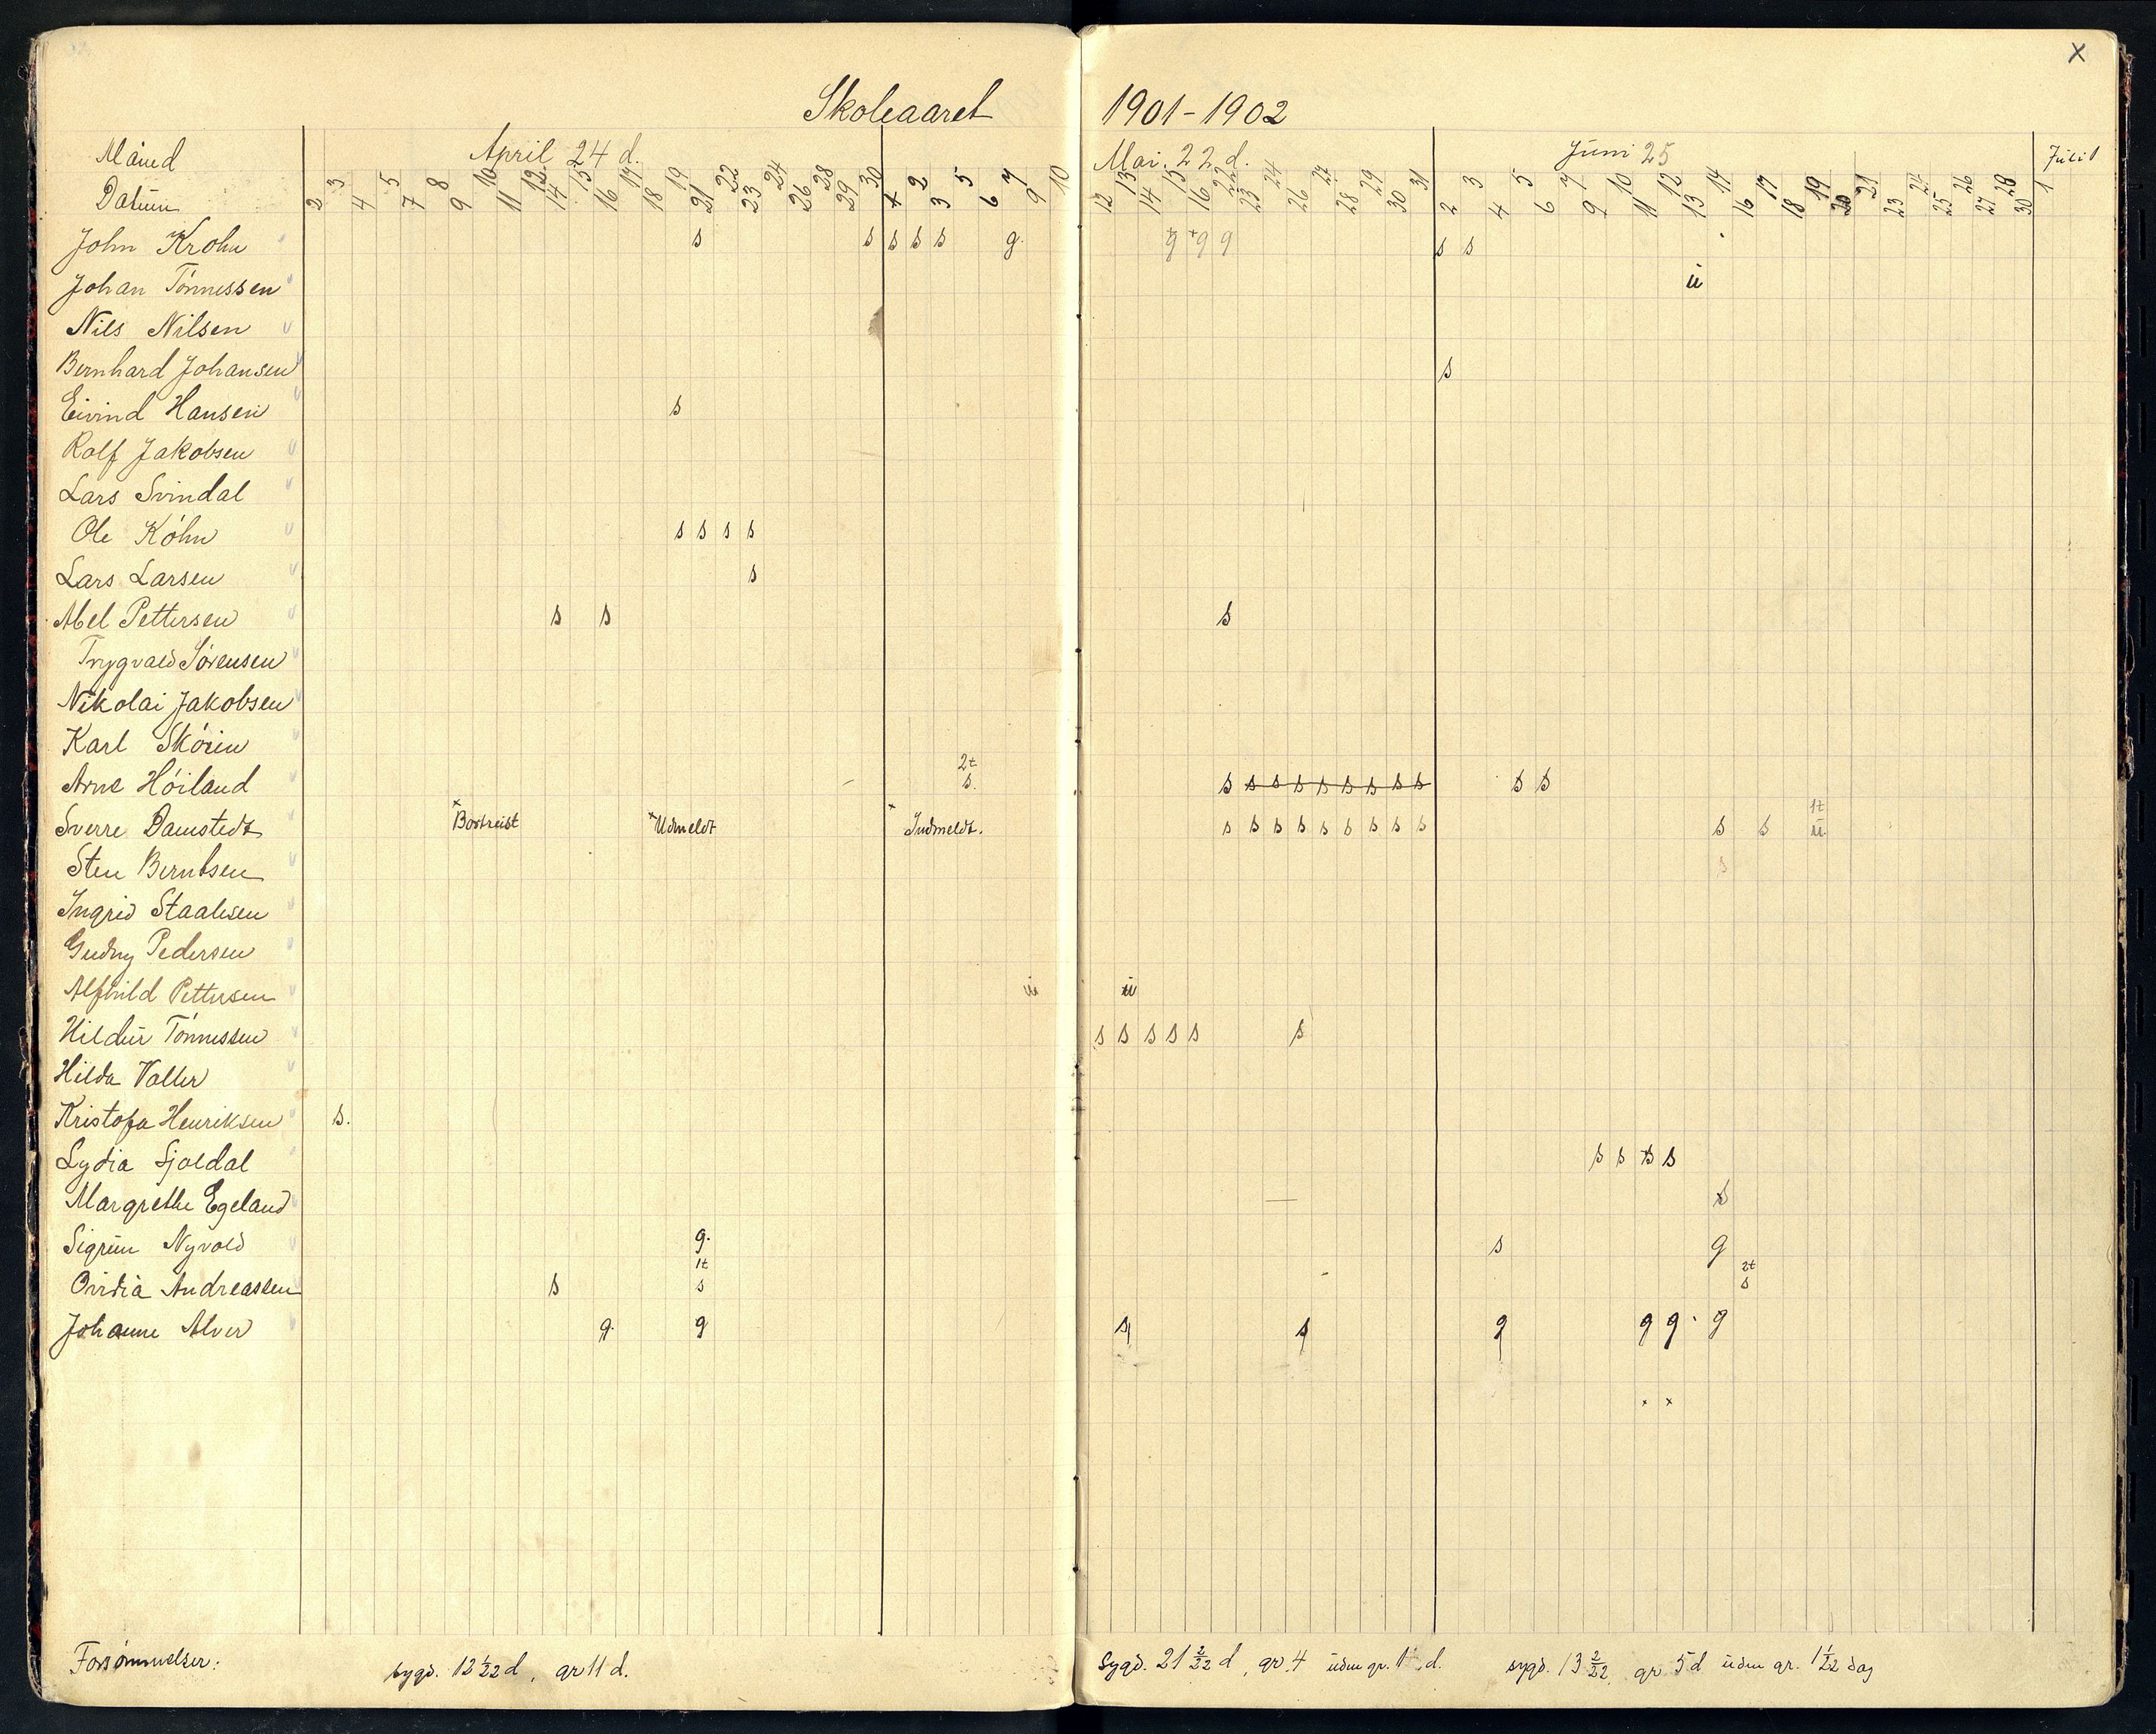 x
Skoleaaret 1901-1902
Måned April 24 d. Mai. 22 d. Juni 25 Juli 1
Datum 2 3 4 5 7 8 9 10 11 12 14 15 16 17 18 19 21 22 23 24 26 28 29 30 1 2 3 5 6 7 9 10 12 13 14 15 16 22 23 24 26 27 28 29 30 31 2 3 4 5 6 7 9 10 11 12 13 14 16 17 18 19 20 21 23 24 25 26 27 28 30 1
John Krohn s s s s s g g g g s s
Johan Tönnessen u
Nils Nilsen
Bernhard Johansen s
Eivind Hansen s
Rolf Jakobsen
Lars Svindal
Ole Köhn s s s s
Lars Larsen s
Abel Pettersen s s s
Trygvald Sörensen
Nikolai Jakobsen
Karl Skörin
2t
Arne Höiland s. s s s s s s s s s s s
1t
Sverre Damstedt Bortreist Udmeldt Indmeldt. s s s s s s s s s s s u
Sten Berntsen s
Ingrid Staalesen
Gudny Pedersen
Alfhild Pettersen u u
Hildur Tönnessen s s s s s s
Hilda Valler
Kristofa Henriksen s.
Lydia Sjoldal s s s s
Margrethe Egeland s
Sigrun Nyvold g. s g
1t 2t
Ovidia Andreassen s s s
Johanne Alver g. g s s g g g g
x x
Forsömmelser: sygd. 12 1/22 d, gr 11 d. sygd. 21 2/22 d, gr. 4 uden gr. 1 d. sygd. 13 2/22, gr 5 d uden gr. 1 1/22 dag